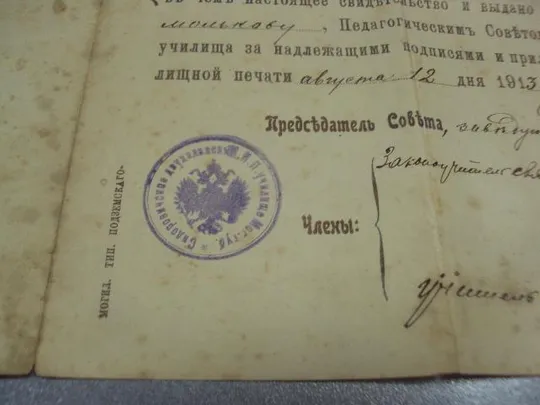 въ чемъ настоящее свидѣтельство и выдано
молькову, Педагогическимъ Совѣто
училища за надлежащими подписями и прил
лищной печати августа 12 дня 1913
Предсѣдатель Совѣта,
Законоучитель свя
Члены:
учитель
МОГИЛ. ТИП. ПОДЗЕМСКАГО
двухклассное М.Н.П. училище Мог. губ.